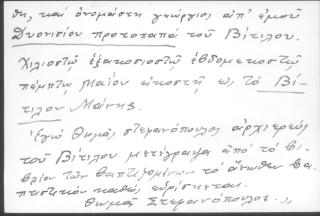 θη, καί ὀνομάστη γεώργιος ἀπ' ἐμοῦ
Διονυσίου πρωτοπαπᾶ τοῦ Βίτιλου.
Χιλιοστῷ ἑξακοσιοστῷ ἑβδομηκοστῷ
πέμπτῳ Μαΐου εἰκοστῇ εἰς τό Βί-
τιλον Μάνης.
Ἐγώ Θωμᾶς Στεφανόπουλος ἀρχιερεύς
τοῦ Βίτιλου μετέγραψα ἀπό τό βι-
βλίον τῶν βαπτιζομένων τό ἄνωθεν βα-
πτιστικόν καθώς εὑρίσκεται.
Θωμᾶς Στεφανόπουλος.